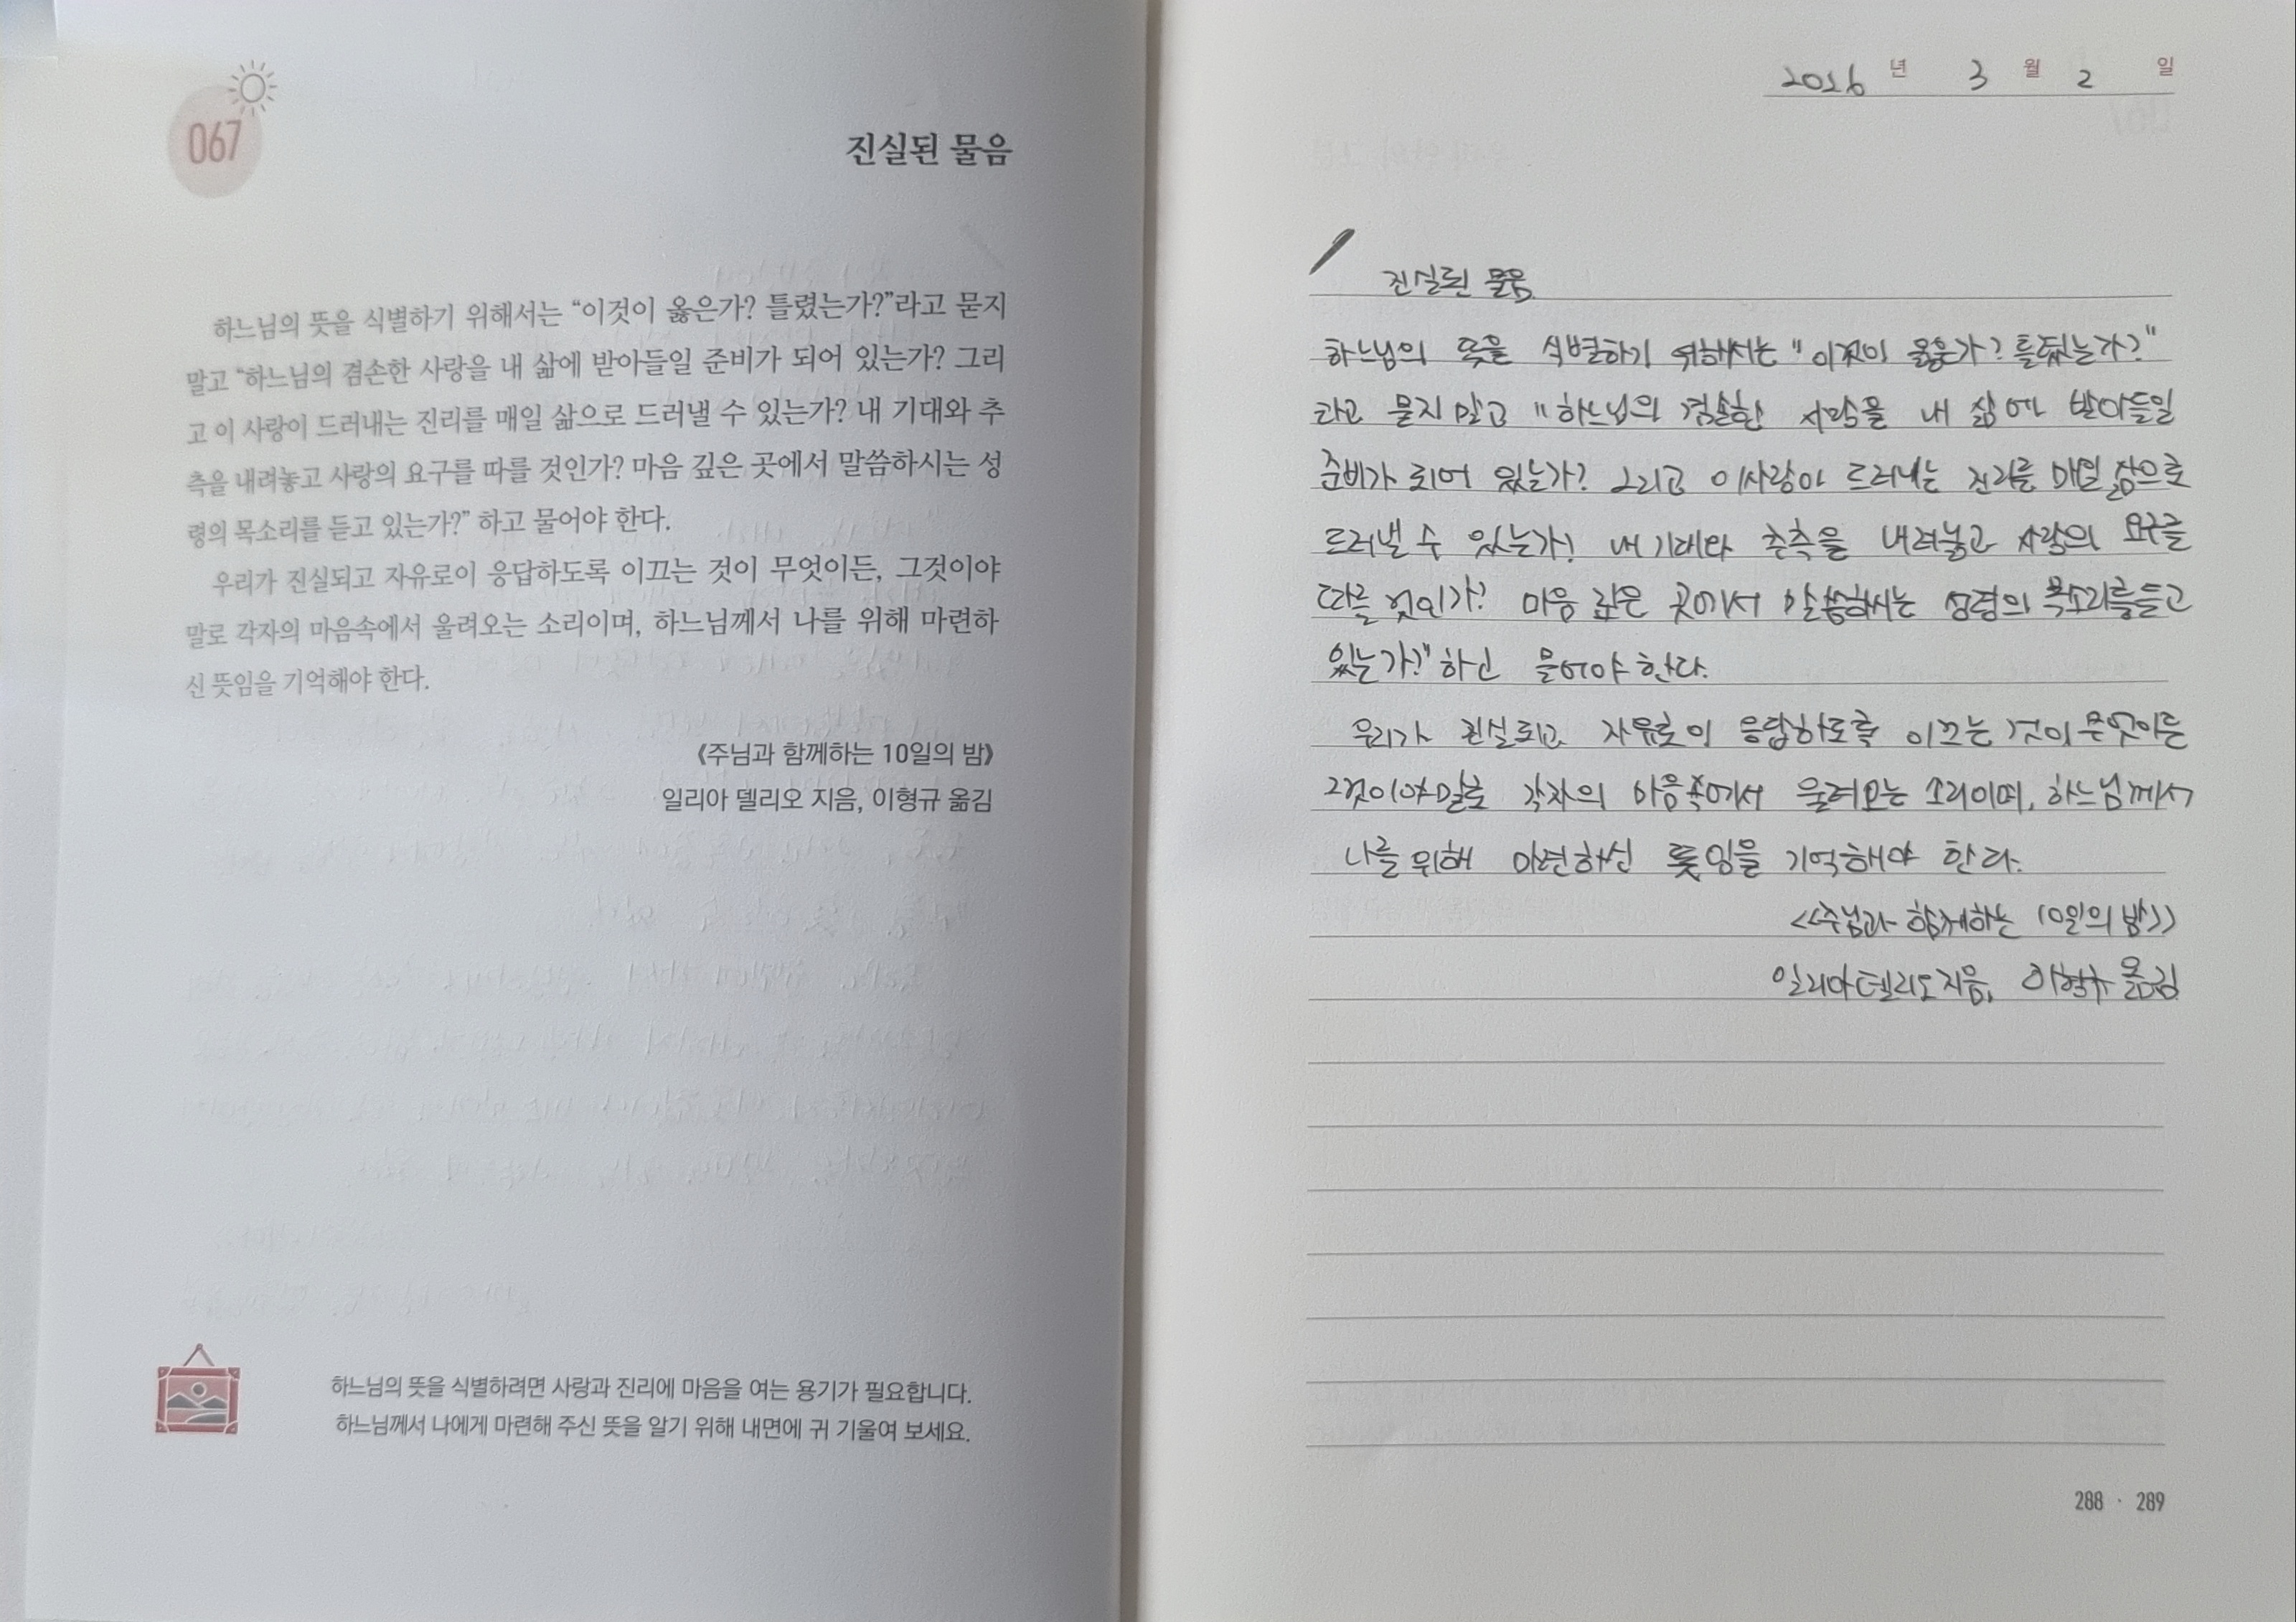 067
진실된 물음
하느님의 뜻을 식별하기 위해서는 “이것이 옳은가? 틀렸는가?”라고 묻지
말고 “하느님의 겸손한 사랑을 내 삶에 받아들일 준비가 되어 있는가? 그리
고 이 사랑이 드러내는 진리를 매일 삶으로 드러낼 수 있는가? 내 기대와 추
측을 내려놓고 사랑의 요구를 따를 것인가? 마음 깊은 곳에서 말씀하시는 성
령의 목소리를 듣고 있는가?” 하고 물어야 한다.
우리가 진실되고 자유로이 응답하도록 이끄는 것이 무엇이든, 그것이야
말로 각자의 마음속에서 울려오는 소리이며, 하느님께서 나를 위해 마련하
신 뜻임을 기억해야 한다.
《주님과 함께하는 10일의 밤》
일리아 델리오 지음, 이형규 옮김
하느님의 뜻을 식별하려면 사랑과 진리에 마음을 여는 용기가 필요합니다.
하느님께서 나에게 마련해 주신 뜻을 알기 위해 내면에 귀 기울여 보세요.
2026 년 3 월 2 일
진실된 물음
하느님의 뜻을 식별하기 위해서는 "이것이 옳은가? 틀렸는가?"
라고 묻지 말고 "하느님의 겸손한 사랑을 내 삶에 받아들일
준비가 되어 있는가? 그리고 이사랑이 드러내는 진리를 매일 삶으로
드러낼 수 있는가? 내 기대와 추측을 내려놓고 사랑의 요구를
따를 것인가? 마음 깊은 곳에서 말씀하시는 성령의 목소리를듣고
있는가?" 하고 물어야 한다.
우리가 진실되고 자유로이 응답하도록 이끄는 것이 무엇이든
그것이야말로 각자의 마음속에서 울려오는 소리이며, 하느님께서
나를 위해 마련하신 뜻임을 기억해야 한다.
<<주님과 함께하는 10일의 밤>>
일리아 델리오 지음, 이형규 옮김
288 · 289